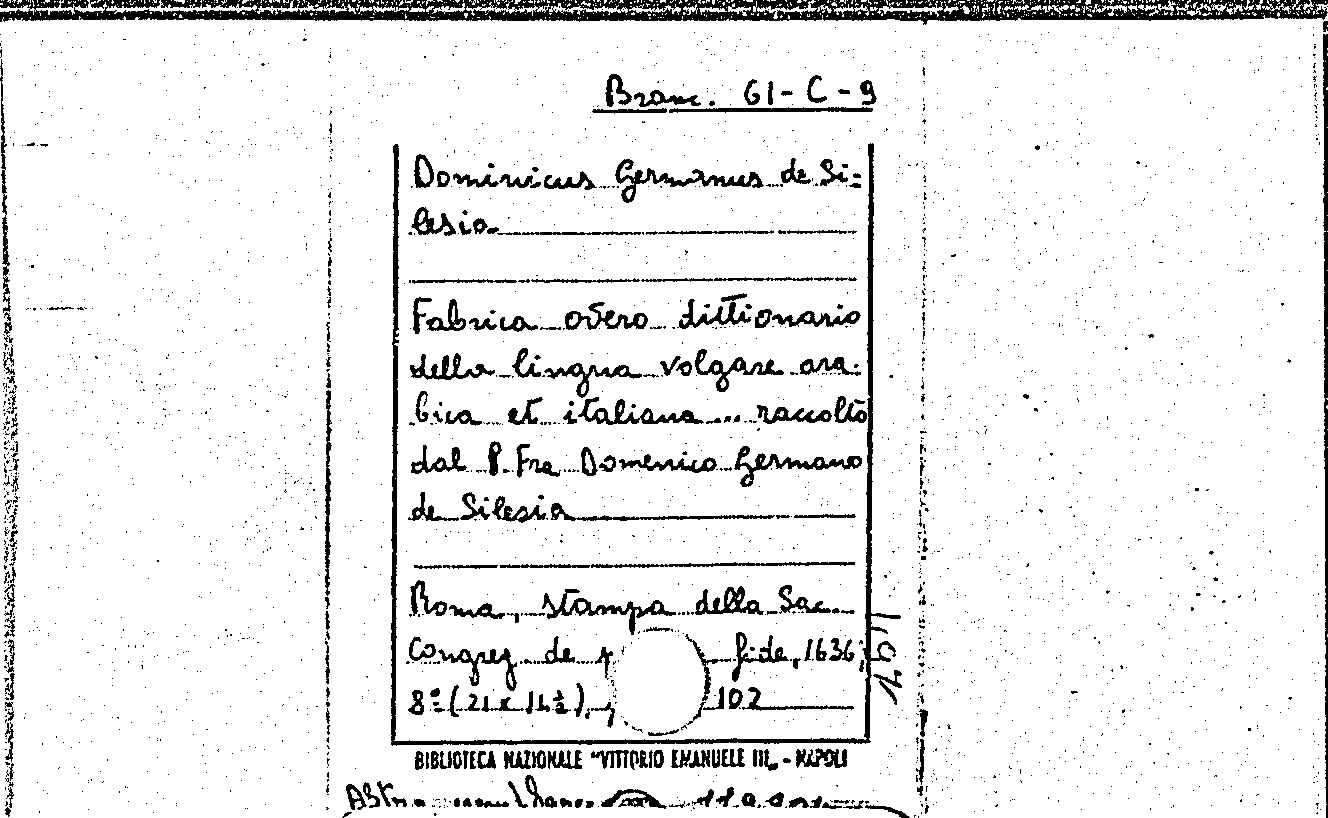 Branc. 61-C-9
Dominicus Germanus de Si=
lesia
Fabrica overo dittionario
della lingua volgare ara-
bica et italiana ... raccolto
dal P. Fra Domenico Germano
de Silesia
Roma, stampa della Sac.
Congreg. de fide, 1636;
8º (21 x 14½), 102
BIBLIOTECA NAZIONALE "VITTORIO EMANUELE III" - NAPOLI